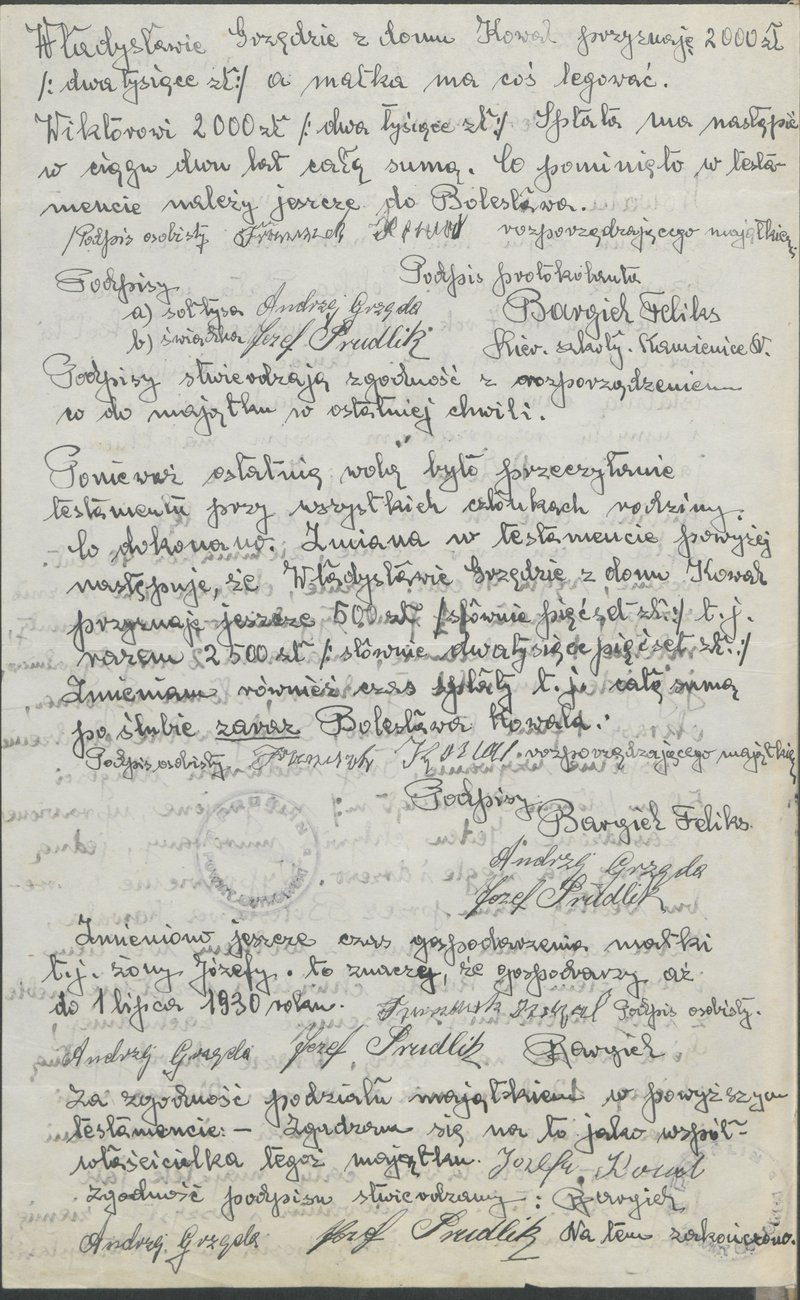 Władysławie Grzędzie z domu Kowal przyznaję 2000 zł
/: dwa tysiące zł :/ a matka ma coś legować.
Wiktorowi 2000 zł /: dwa tysiące zł :/ Spłata ma nastąpić
w ciągu dwu lat całą sumą. Co pominięto w testa-
mencie należy jeszcze do Bolesława.
/Podpis osobisty Franciszek Kowal rozporządzającego majątkiem.
Podpisy
Podpis protokolanta
a) sołtysa Andrzej Grzęda
Bargieł Feliks
b) świadka Józef Prudlik
Kier. szkoły. Kamienice W.
Podpisy stwierdzają zgodność z rozporządzeniem
co do majątku w ostatniej chwili.
Ponieważ ostatnią wolą było przeczytanie
testamentu przy wszystkich członkach rodziny.
- Co dokonano. Zmiana w testamencie powyżej
następuje, że Władysławie Grzędzie z domu Kowal
przyznaję jeszcze 500 zł /słównie pięćset zł :/ t. j.
razem 2500 zł /: słównie dwatysiące pięćset zł :/
Zmieniam również czas spłaty t. j. całą sumą
po ślubie zaraz Bolesława Kowala.
Podpis osobisty Franciszek Kowal. rozporządzającego majątkiem
Podpisy
Bargieł Feliks.
Andrzej Grzęda
Józef Prudlik
Zmieniono jeszcze czas gospodarzenia matki
t. j. żony Józefy. to znaczy, że gospodarzy aż
do 1 lipca 1930 roku. Franciszek Kowal Podpis osobisty.
Andrzej Grzęda Józef Prudlik Bargieł
Za zgodność podziału majątkiem w powyższym
testamencie: - Zgadzam się na to jako współ-
właścicielka tegoż majątku. Józefa Kowal
Zgodność podpisu stwierdzamy: Bargieł
Andrzej Grzęda Józef Prudlik Na tem zakończono.